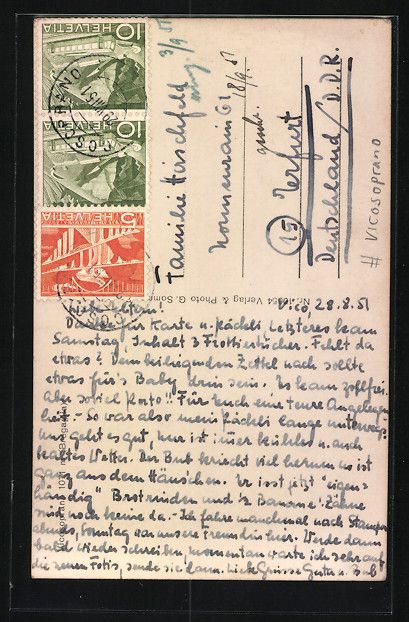 HELVETIA 10
HELVETIA 10
HELVETIA 5
3/9 51
Familie Hirschfeld
Nonnenrain 61
18/9. 51
(15) Erfurt
Deutschland / D.D.R.
# VICOSOPRANO
Verlag Photo G. Somm
Vico, 28.8.51
Liebe Eltern!
Danke für Karte u. Päckli, Letzteres kam
Samstag, Inhalt 3 Frottiertücher. Fehlt da
etwas? Dem beiliegenden Zettel nach sollte
etwas für's Baby drin sein. Es kam zollfrei.
Aber soviel Porto!! Für Euch eine teure Angelegen-
heit. - So war also mein Päckli lange unterwegs.
Uns geht es gut, nur ist immer kühles u. auch
kaltes Wetter. Der Bub kriecht viel herum u. ist
ganz aus dem Häuschen. Er isst jetzt "eigen-
händig" Brotrinden und ½ Banane! Zähne
sind noch keine da. - Ich fahre manchmal nach Stampa
abends, Sonntag war unsere Freundin hier. Werde dann
bald wieder schreiben, momentan warte ich sehr auf
die neuen Fotis, sende sie dann. Liebe Grüsse u. Bub